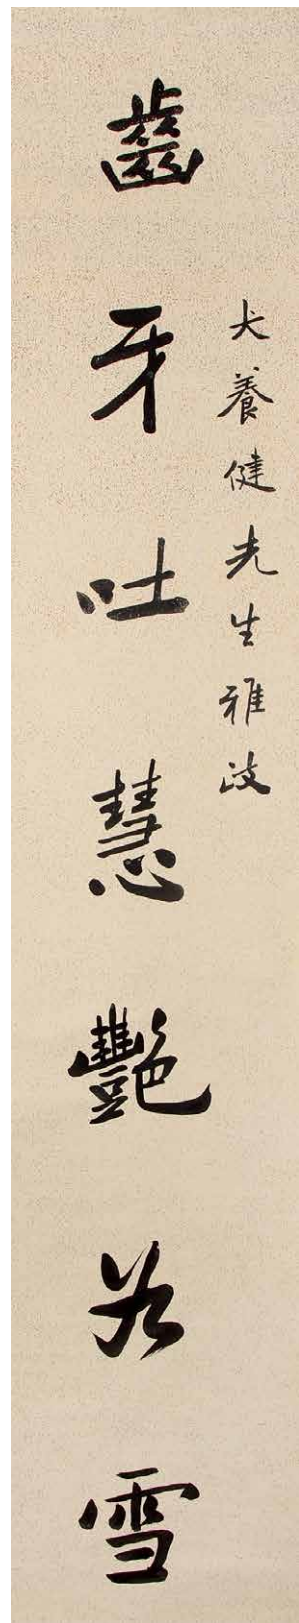 犬養健先生雅政
齒牙吐慧艷若雪